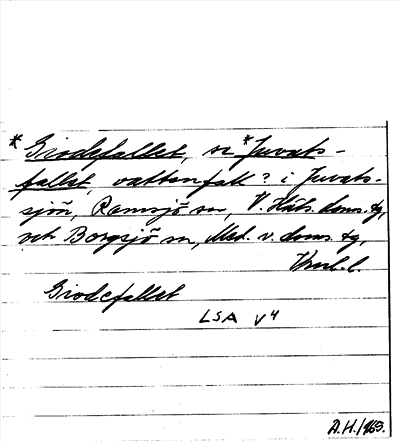 * Giodefallet, se * Juvats-
fallet, vattenfall? i Juvats-
sjön, Ramsjö sn, V. Häls. doms. tg,
och Borgsjö sn, Med. v. doms. tg,
Giodefallet
LSA V4
A.H./163.